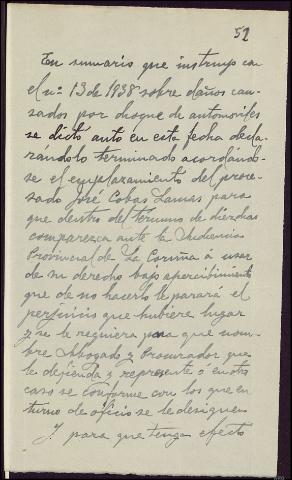 52
En sumario que instruyo con
el nº 13 de 1938 sobre daños cau-
sados por choque de automoviles
se dictó auto en esta fecha decla-
rándolo terminado acordándo-
se el emplazamiento del proce-
sado José Cobas Lamas para
que dentro del termino de diez dias
comparezca ante la Audiencia
Provincial de La Coruña a usar
de su derecho bajo apercibimiento
que de no hacerlo le parará el
perjuicio que hubiere lugar
y se le requiera para que nom-
bre Abogado y Procurador que
le defienda y represente o en otro
caso se conforme con los que en
turno de oficio se le designen
Y para que tenga efecto